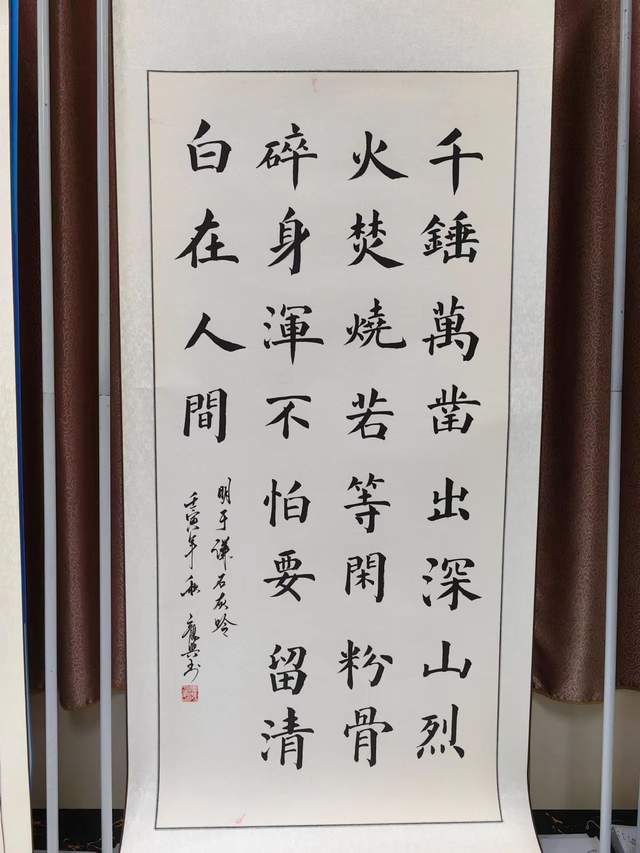 千錘萬凿出深山烈
火焚燒若等閑粉骨
碎身渾不怕要留清
白在人間
明于謙石灰吟
壬寅年秋